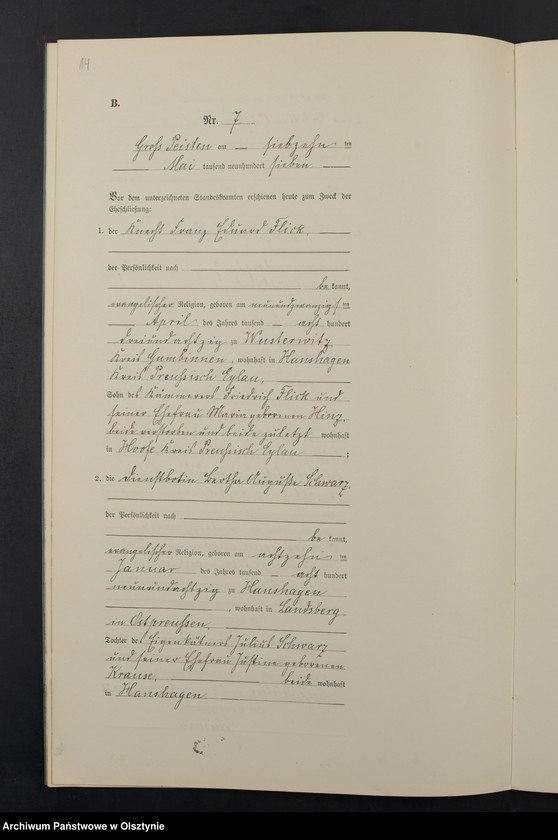 14
B.
Nr. 7
Groß Peisten am siebzehnten
Mai tausend neunhundert sieben
Vor dem unterzeichneten Standesbeamten erschienen heute zum Zweck der
Eheschließung:
1. der Knecht Franz Eduard Flick,
der Persönlichkeit nach
be kannt,
evangelischer Religion, geboren am neunundzwanzigsten
April des Jahres tausend acht hundert
dreiundachtzig zu Wusterwitz
Kreis Gumbinnen, wohnhaft in Hanshagen
Kreis Preußisch Eylau,
Sohn des Kämmerers Friedrich Flick und
seiner Ehefrau Maria geborenen Hinz,
beide verstorben und beide zuletzt wohnhaft
in Hoofe Kreis Preußisch Eylau ;
2. die Dienstbotin Bertha Auguste Schwarz
der Persönlichkeit nach
be kannt,
evangelischer Religion, geboren am achtzehnten
Januar des Jahres tausend acht hundert
neunundachtzig zu Hanshagen
, wohnhaft in Landsberg
in Ostpreussen,
Tochter des Eigenkätners Julius Schwarz
und seiner Ehefrau Justine geborenen
Krause, beide wohnhaft
in Hanshagen
Archiwum Państwowe w Olsztynie